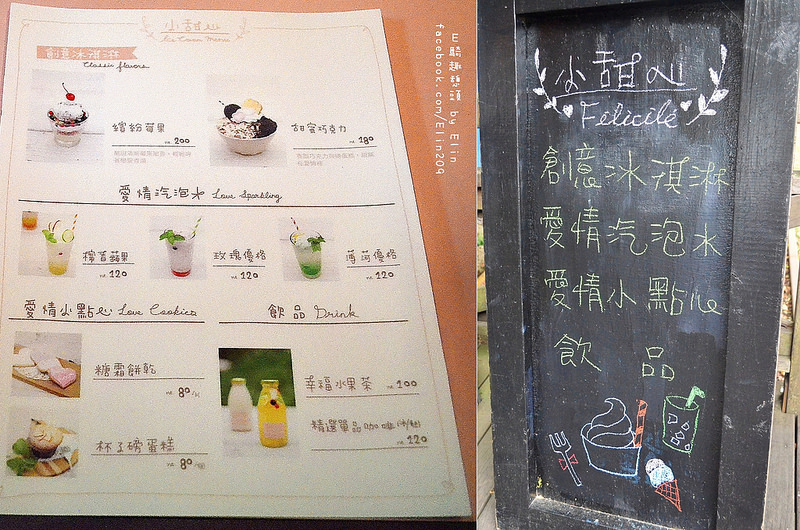 小甜心
Ice Cream Menu
創意冰淇淋
Classic flavors
繽紛莓果
NT. 200
甜蜜巧克力
NT. 180
愛情汽泡水 Love Sparkling
檸青蘋果
NT. 120
玫瑰優格
NT. 120
薄荷優格
NT. 120
愛情小點心 Love Cookies
糖霜餅乾
NT. 80
杯子磅蛋糕
NT. 80
飲品 Drink
幸福水果茶 NT. 200
精選單品咖啡
NT. 120
E騎趣趣頭 by Elin
facebook.com/Elin209
小甜心
Félicité
創意冰淇淋
愛情汽泡水
愛情小點心
飲品